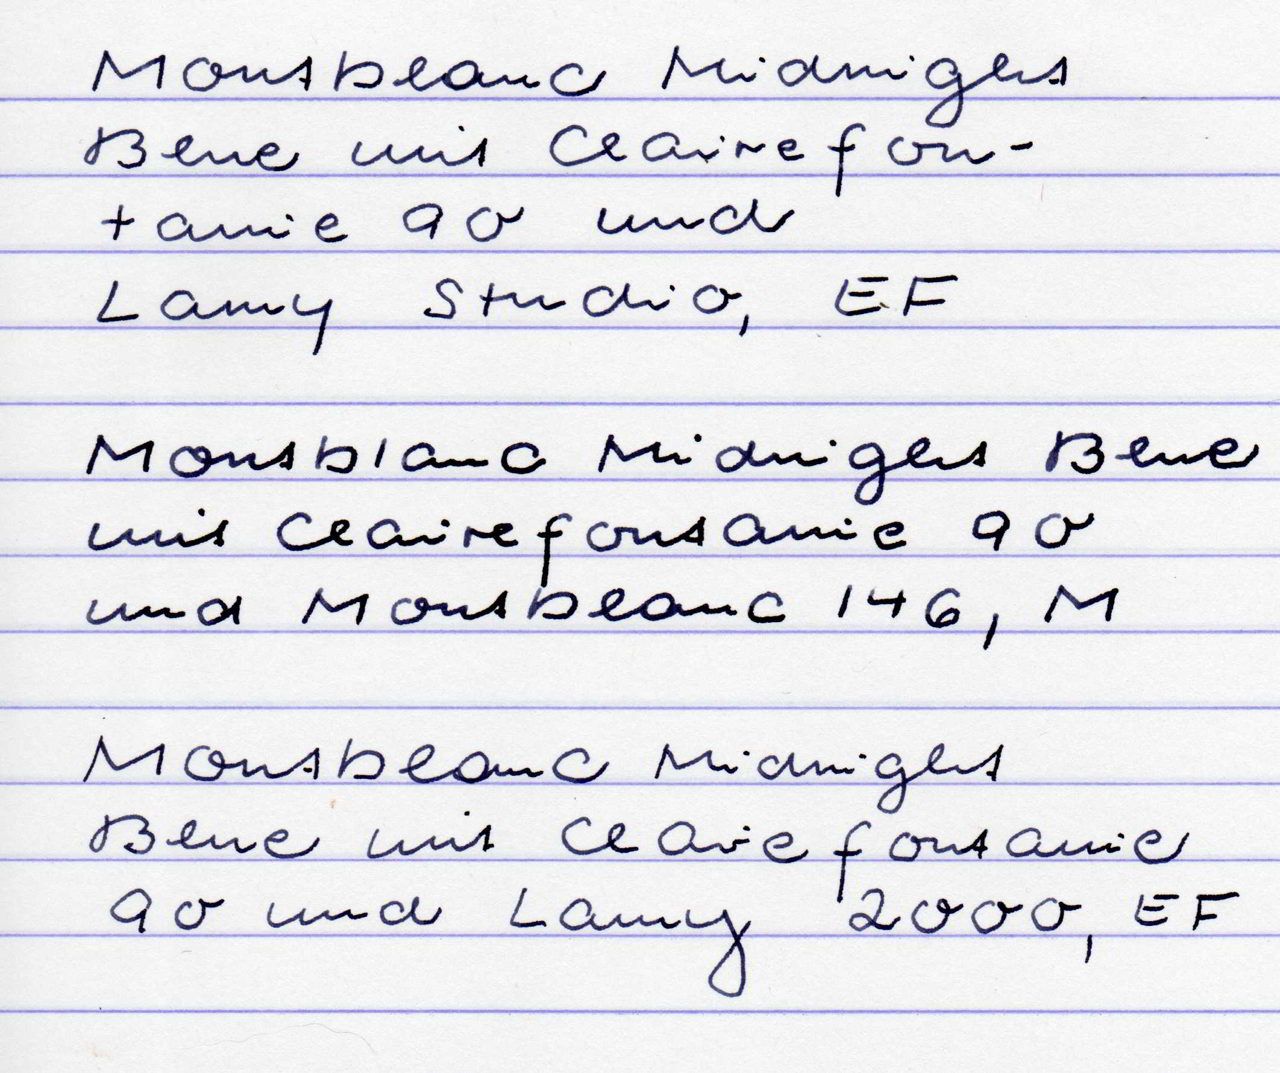 Montblanc Midnight
Blue mit Clairefon-
taine 90 und
Lamy Studio, EF
Montblanc Midnight Blue
mit Clairefontaine 90
und Montblanc 146, M
Montblanc Midnight
Blue mit Clairefontaine
90 und Lamy 2000, EF